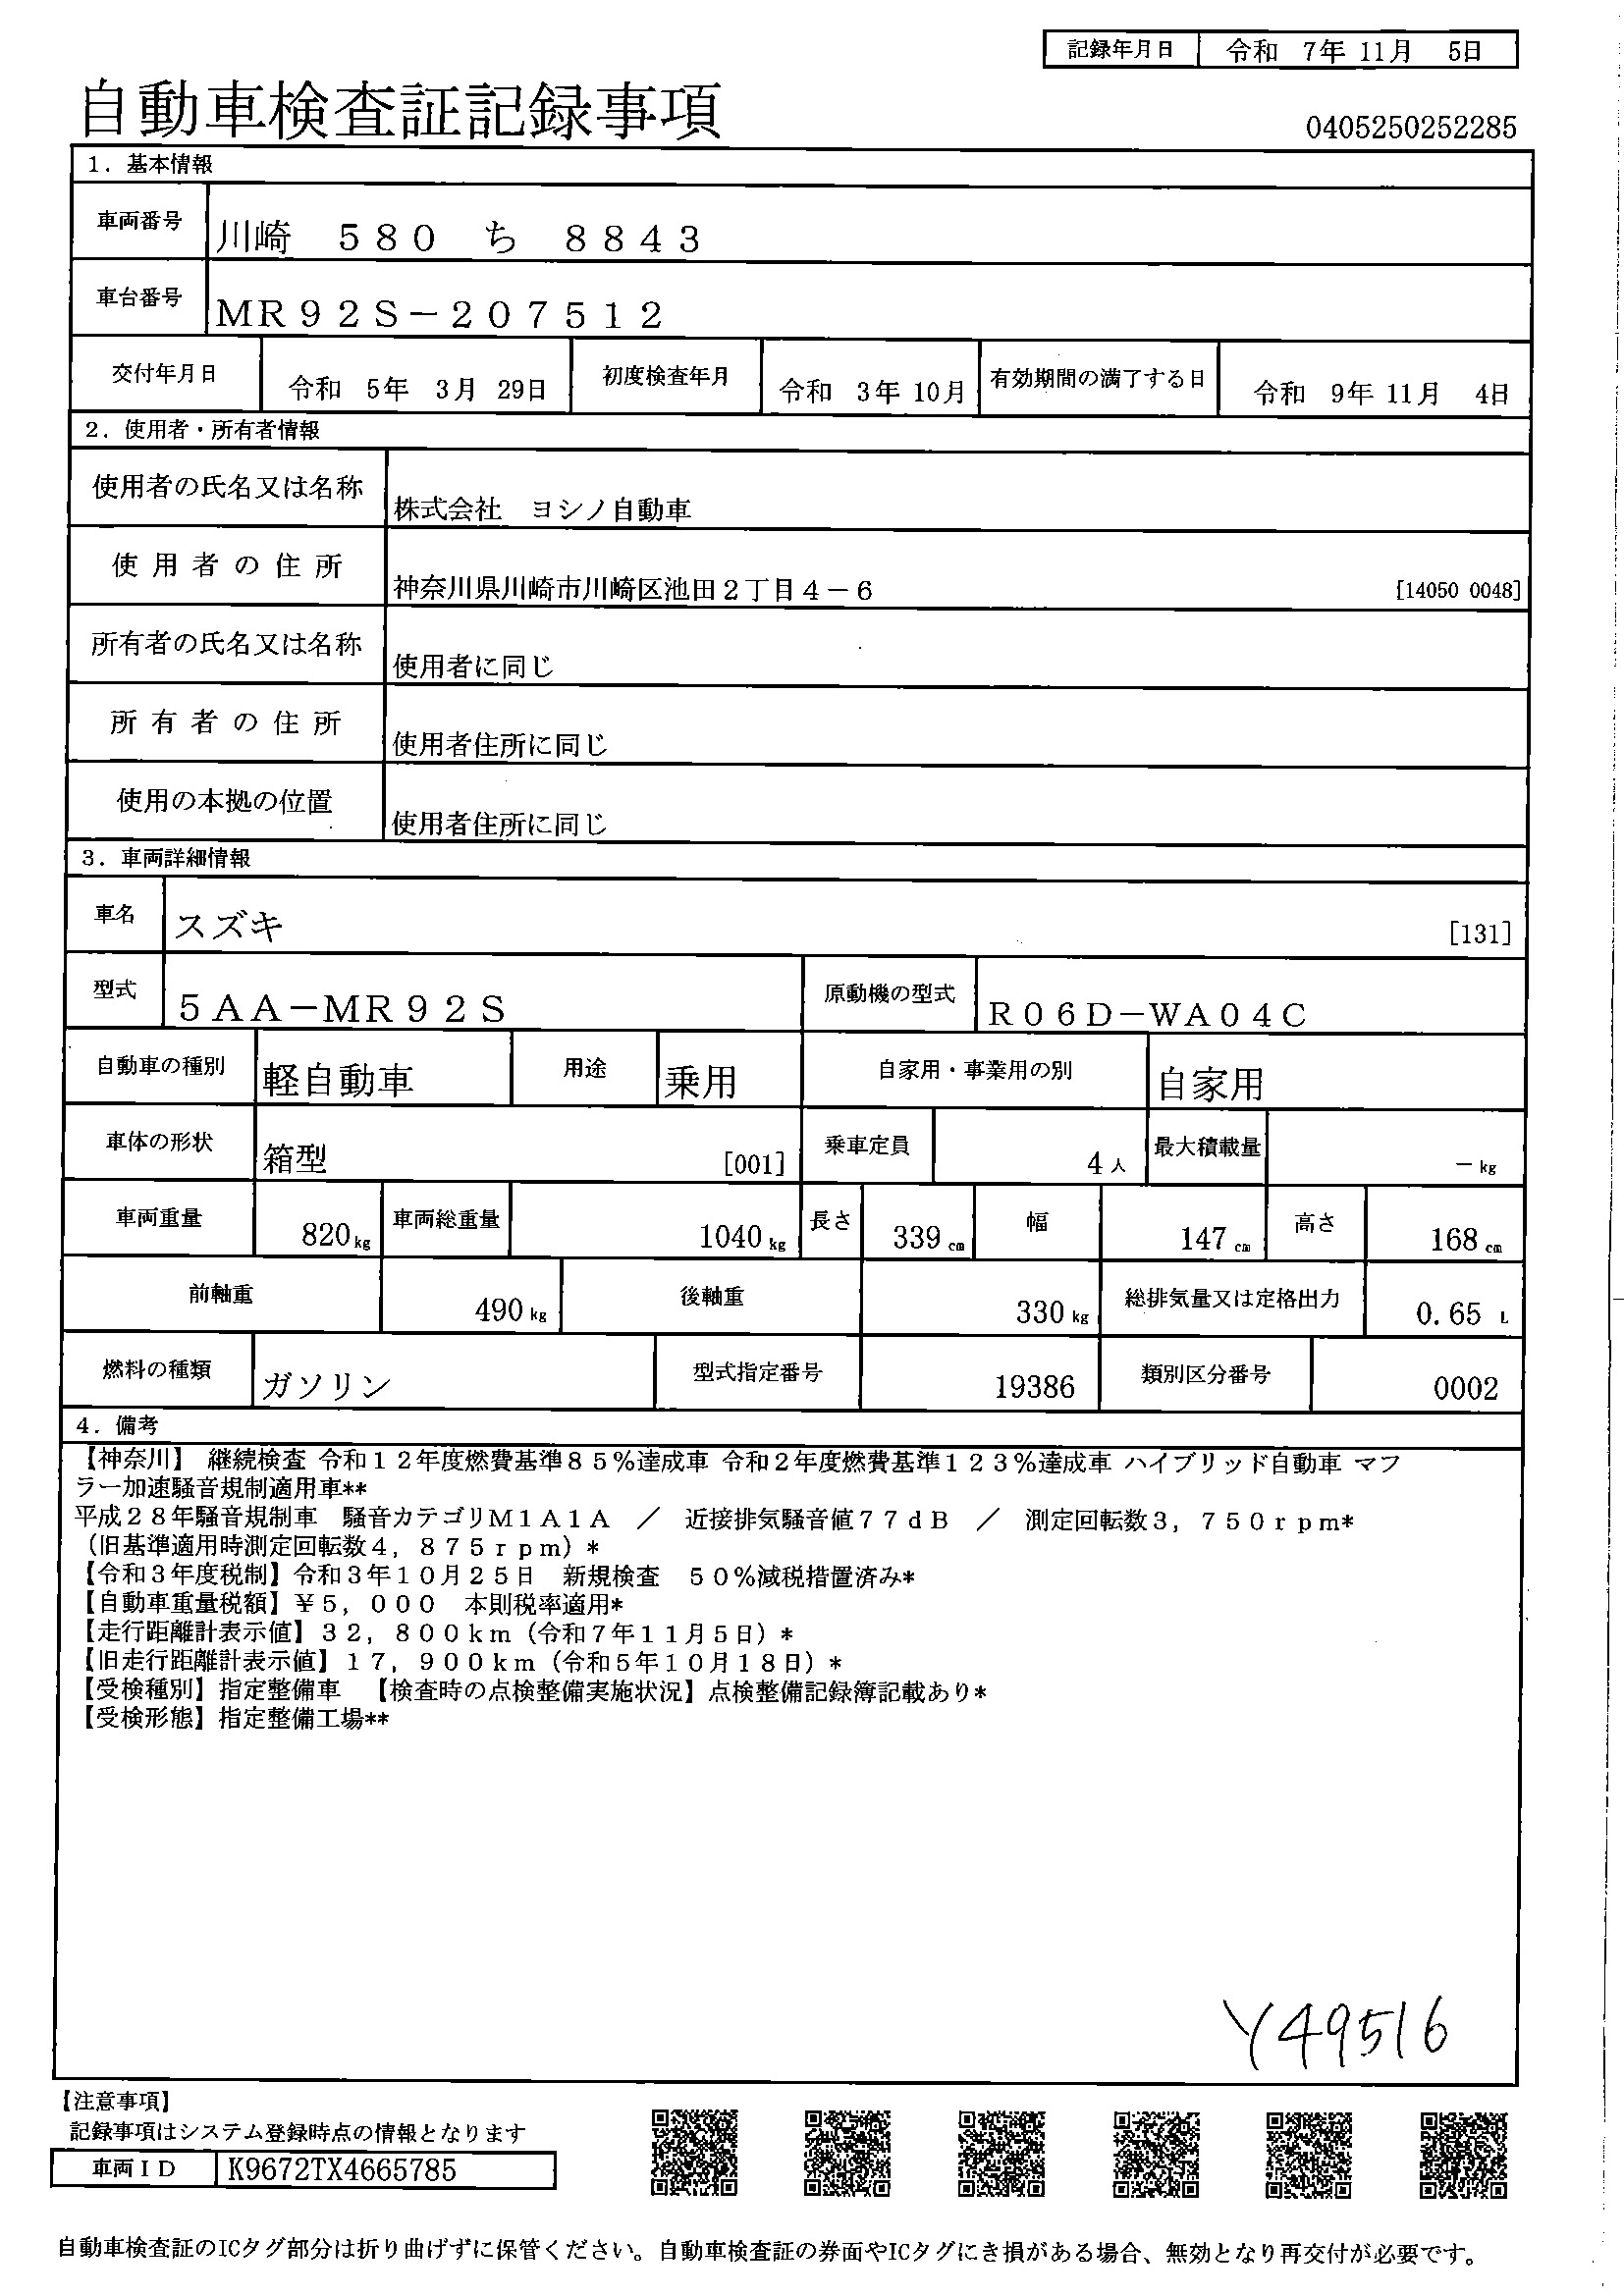 記録年月日 令和 7年 11月 5日
自動車検査証記録事項
0405250252285
1. 基本情報
車両番号 川崎 580 ち 8843
車台番号 MR92S-207512
交付年月日 令和 5年 3月 29日 初度検査年月 令和 3年 10月 有効期間の満了する日 令和 9年 11月 4日
2. 使用者・所有者情報
使用者の氏名又は名称 株式会社 ヨシノ自動車
使用者の住所 神奈川県川崎市川崎区池田2丁目4-6 [14050 0048]
所有者の氏名又は名称 使用者に同じ
所有者の住所 使用者住所に同じ
使用の本拠の位置 使用者住所に同じ
3. 車両詳細情報
車名 スズキ [131]
型式 5AA-MR92S 原動機の型式 R06D-WA04C
自動車の種別 軽自動車 用途 乗用 自家用・事業用の別 自家用
車体の形状 箱型 [001] 乗車定員 4人 最大積載量 -kg
車両重量 820kg 車両総重量 1040kg 長さ 339cm 幅 147cm 高さ 168cm
前軸重 490kg 後軸重 330kg 総排気量又は定格出力 0.65 L
燃料の種類 ガソリン 型式指定番号 19386 類別区分番号 0002
4. 備考
【神奈川】 継続検査 令和12年度燃費基準85%達成車 令和2年度燃費基準123%達成車 ハイブリッド自動車 マフ
ラー加速騒音規制適用車**
平成28年騒音規制車 騒音カテゴリM1A1A / 近接排気騒音値77dB / 測定回転数3,750rpm*
(旧基準適用時測定回転数4,875rpm)*
【令和3年度税制】令和3年10月25日 新規検査 50%減税措置済み*
【自動車重量税額】¥5,000 本則税率適用*
【走行距離計表示値】32,800km(令和7年11月5日)*
【旧走行距離計表示値】17,900km(令和5年10月18日)*
【受検種別】指定整備車 【検査時の点検整備実施状況】点検整備記録簿記載あり*
【受検形態】指定整備工場**
Y49516
【注意事項】
記録事項はシステム登録時点の情報となります
車両ID K9672TX4665785
自動車検査証のICタグ部分は折り曲げずに保管ください。自動車検査証の券面やICタグにき損がある場合、無効となり再交付が必要です。